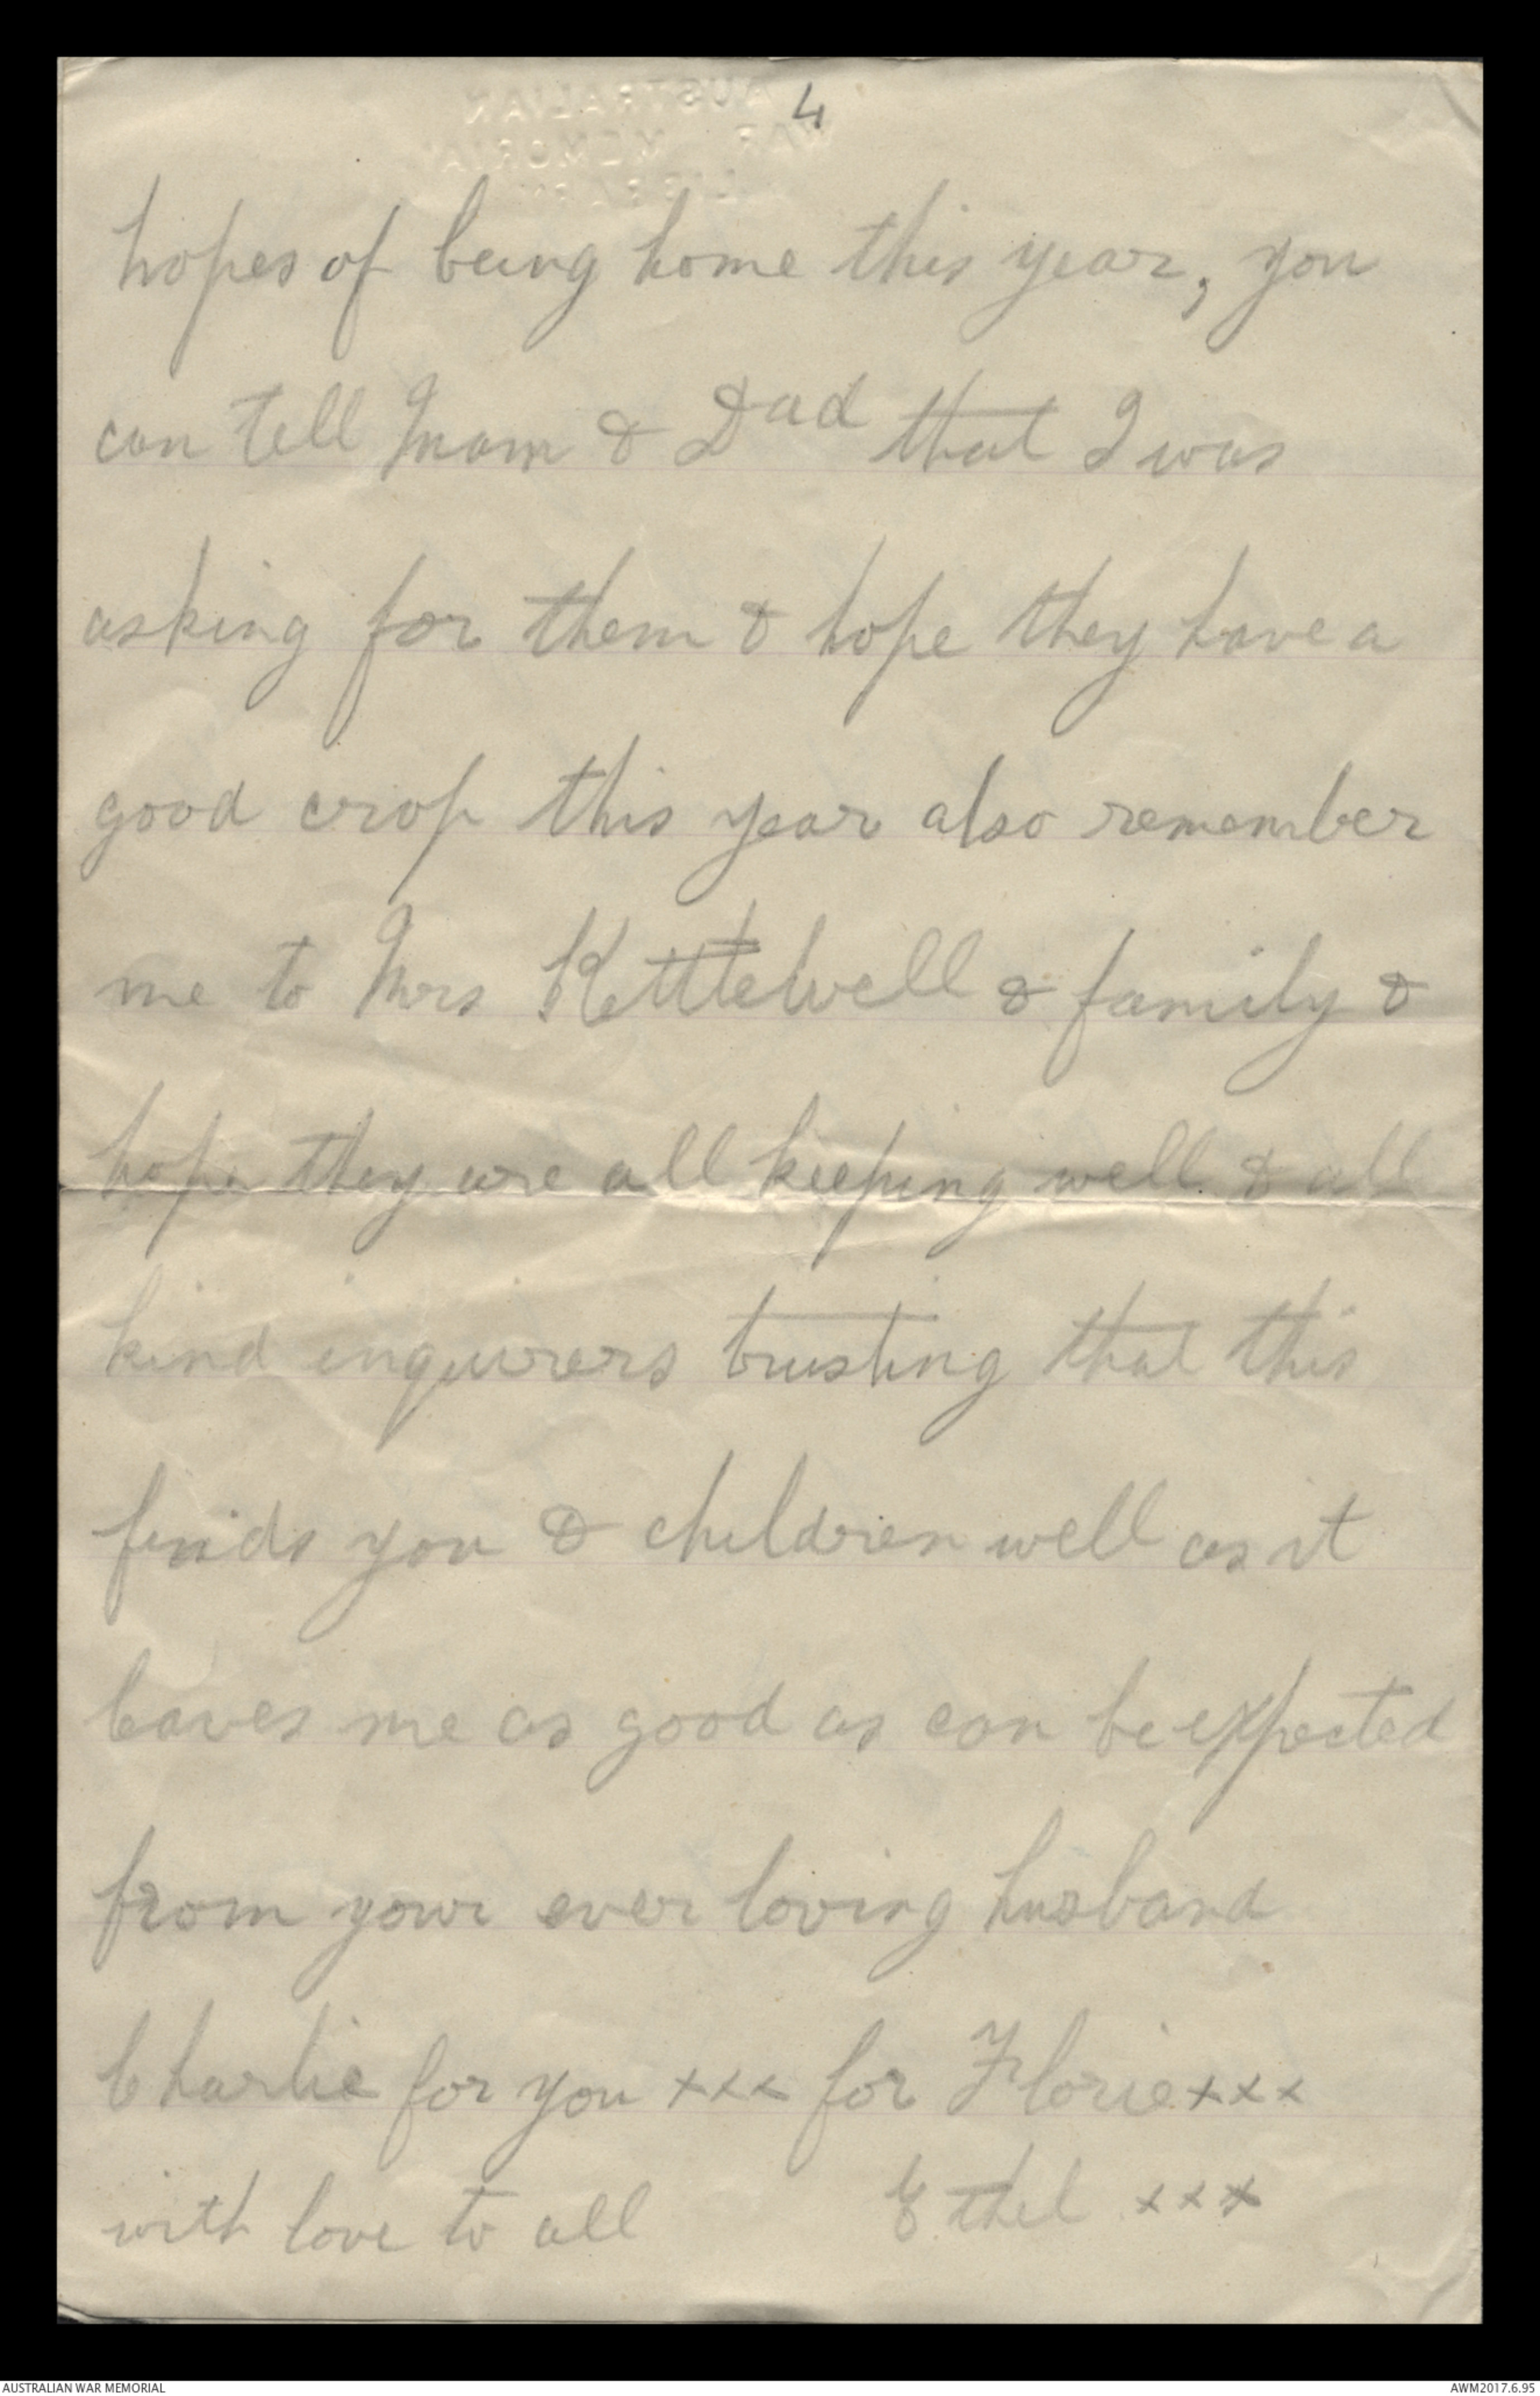 AUSTRALIAN
WAR MEMORIAL
LIBRARY
4
hopes of being home this year, you
can tell Mam & Dad that I was
asking for them & hope they have a
good crop this year also remember
me to Mrs Kettlewell & family &
hope they are all keeping well & all
kind enquirers trusting that this
finds you & children well as it
leaves me as good as can be expected
from your ever loving husband
Charlie for you xxx for Florie xxx
with love to all Ethel xxx
AUSTRALIAN WAR MEMORIAL AWM2017.6.95